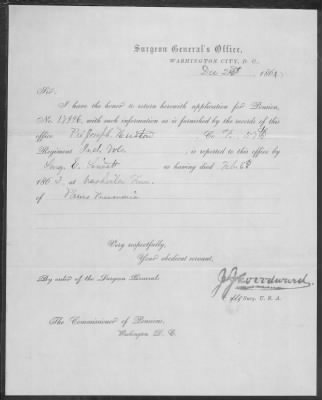 Surgeon General's Office,
WASHINGTON CITY, D. C.,
Dec 1863
Sir:
I have the honor to return herewith application for Pension,
No. 17996, with such information as is furnished by the records of this
office. Joseph Co.
Regiment Ind. Vols., is reported to this office by
Surg. as having died Feb. 6th
1863, at Nashville Tenn.
of Pneumonia
Very respectfully,
Your obedient servant,
By order of the Surgeon General:
J J Woodward
Surg. U. S. A.
The Commissioner of Pensions,
Washington D. C.